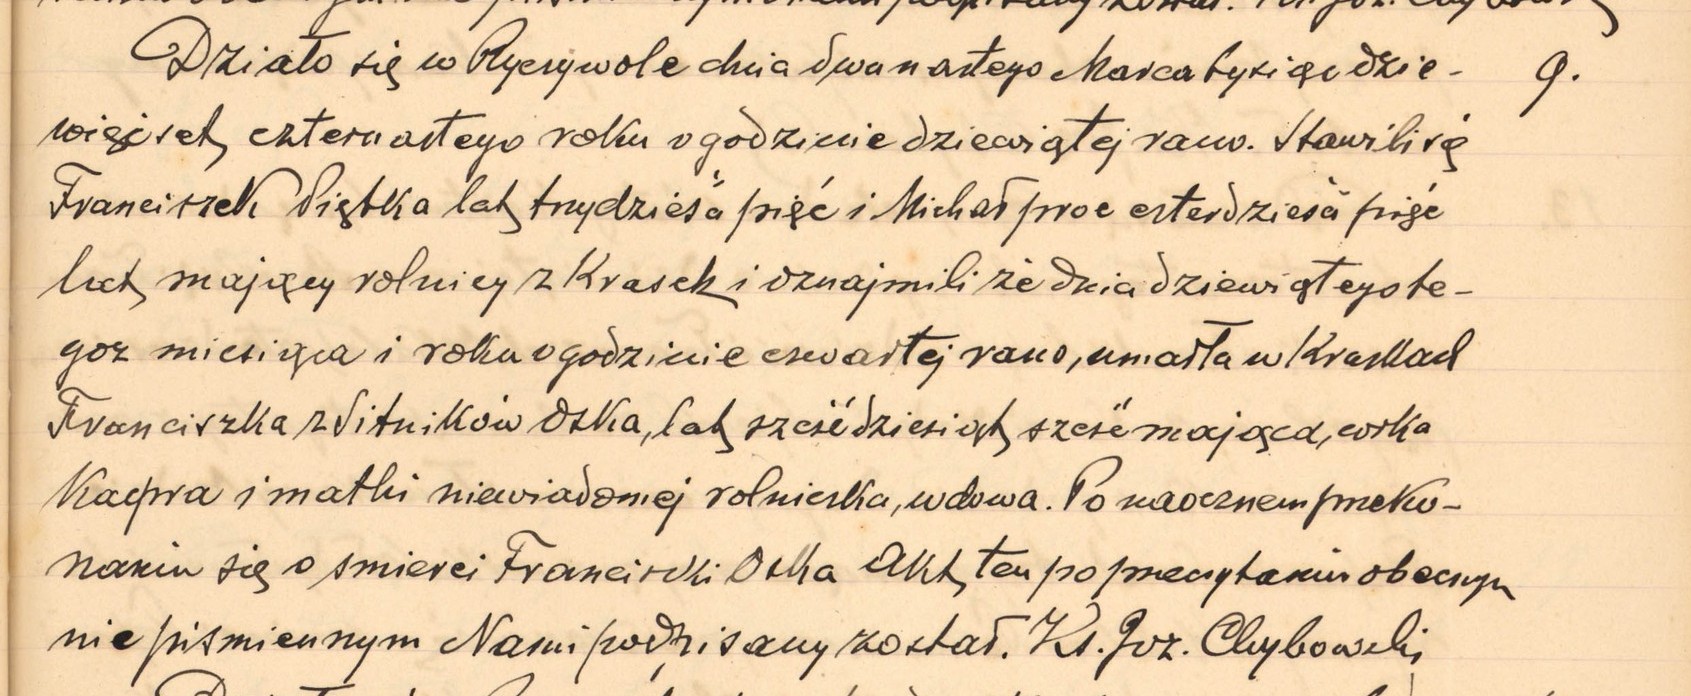 Działo się w Ryczywole dnia dwunastego Marca tysiąc dzie- 9.
więćset czternastego roku o godzinie dziewiątej rano. Stawili się
Franciszek Piętka lat trzydzieści pięć i Michał proc czterdzieści pięć
lat mający rolnicy z Krasek i oznajmili że dnia dziewiątego te-
goz miesiąca i roku o godzinie czwartej rano, umarła w Kraskach
Franciszka z Sitników Oska, lat sześćdziesiąt sześć mająca, córka
Kacpra i matki niewiadomej rolniczka, wdowa. Po naocznem przeko-
naniu się o smierci Franciszki Oska Akt ten po przeczytaniu obecnym
niepiśmiennym Nami podpisany został. Ks. Joz. Chybowski